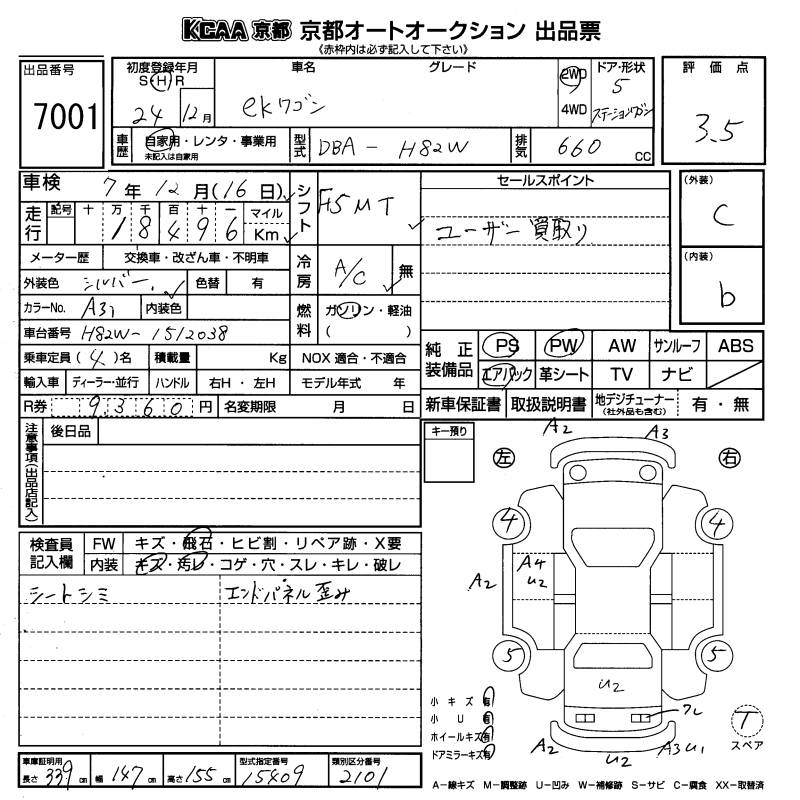 KCAA 京都 京都オートオークション 出品票
《赤枠内は必ず記入して下さい》
出品番号
7001
初度登録年月
S・H・R
24 12月
車名
グレード
ekワゴン
2WD
4WD
ドア・形状
5
ステーションワゴン
評価点
3.5
車歴
自家用・レンタ・事業用
未記入は自家用
型式
DBA - H82W
排気
660 CC
車検
7年12月(16日)
走行
記号 十 万 千 百 十 一
18496
マイル
Km
シフト
F5MT
メーター歴
交換車・改ざん車・不明車
外装色
シルバー
色替
有
冷房
A/C
無
カラーNo.
A31
内装色
燃料
ガソリン・軽油
( )
車台番号
H82W-1512038
乗車定員(4)名
積載量
Kg
NOX 適合・不適合
輸入車
ディーラー・並行
ハンドル
右H・左H
モデル年式 年
R券
9360円
名変期限
月 日
セールスポイント
ユーザー買取り
(外装)
C
(内装)
b
純正装備品
PS
PW
AW
サンルーフ
ABS
エアバック
革シート
TV
ナビ
新車保証書
取扱説明書
地デジチューナー
(社外品も含む)
有・無
注意事項(出品店記入)
後日品
キー預り
左
右
A2
A3
4
4
A2
A4
U2
5
5
U2
フレ
A2
U2
A3U1
T
スペア
検査員記入欄
FW
キズ・飛石・ヒビ割・リペア跡・X要
内装
キズ・汚レ・コゲ・穴・スレ・キレ・破レ
シートシミ
エンドパネル歪み
小キズ有
小U有
ホイールキズ有
ドアミラーキズ有
車庫証明用
長さ 339 cm
幅 147 cm
高さ 155 cm
型式指定番号
15409
類別区分番号
2101
A-線キズ M-調整跡 U-凹み W-補修跡 S-サビ C-腐食 XX-取替済